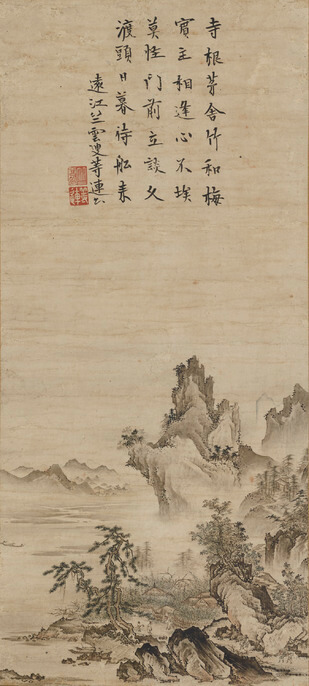 寺根茅舎竹和梅
賓主相逢心不埃
莫怪門前立談久
渡頭日暮待船来
遠江竺雲叟等連書